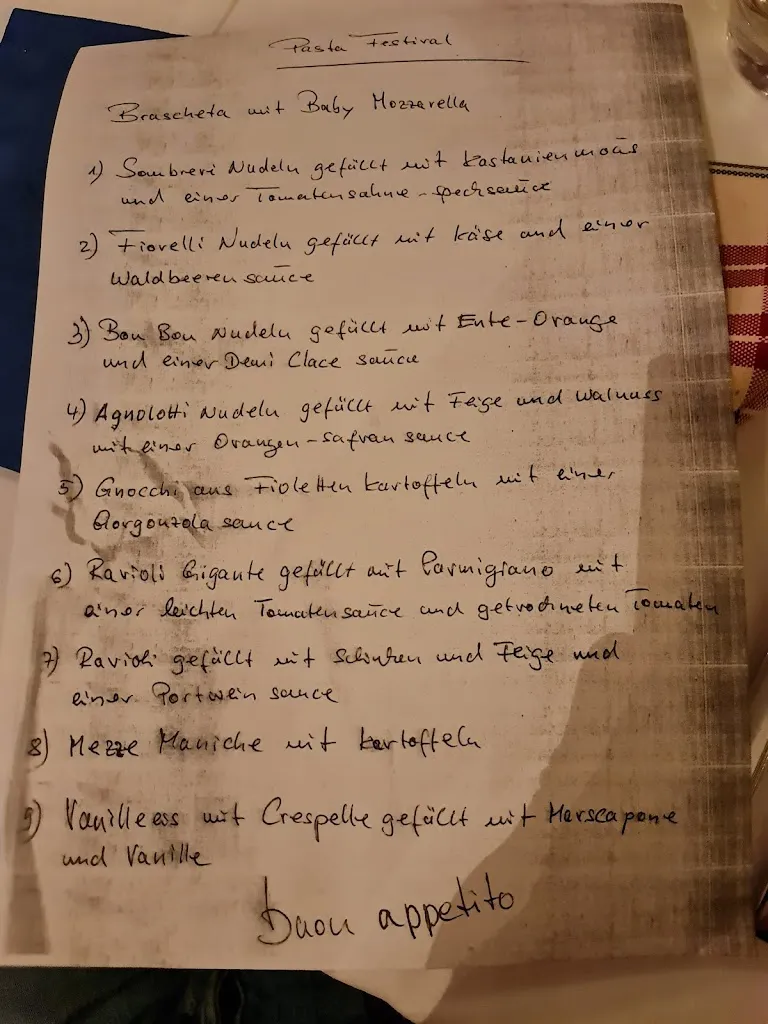 Pasta Festival
Brascheta mit Baby Mozzarella
1) Sombreri Nudeln gefüllt mit Kastanienmous
und einer Tomatensahne-specksauce
2) Fiorelli Nudeln gefüllt mit Käse und einer
Waldbeerensauce
3) Bon Bon Nudeln gefüllt mit Ente-Orange
und einer Demi Clace sauce
4) Agnolotti Nudeln gefüllt mit Feige und Walnuss
mit einer Orangen-safran sauce
5) Gnocchi aus Fioletten Kartoffeln mit einer
Gorgonzola sauce
6) Ravioli Gigante gefüllt mit Parmigiano mit
einer leichten Tomatensauce und getrockneten Tomaten
7) Ravioli gefüllt mit Schinken und Feige und
einer Portwein sauce
8) Mezze Maniche mit Kartoffeln
9) Vanilleeis mit Crespelle gefüllt mit Marscapone
und Vanille
buon appetito